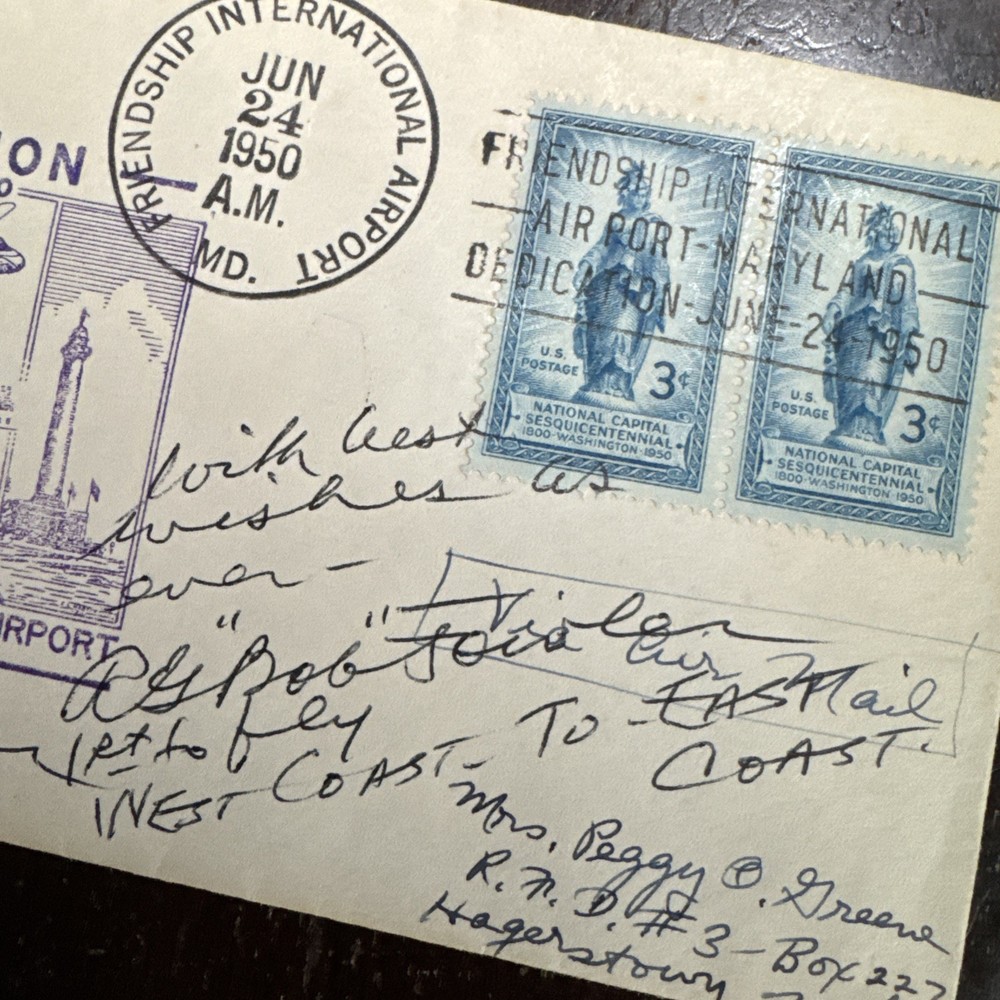 FRIENDSHIP INTERNATIONAL AIRPORT
JUN
24
1950
A.M.
MD.
ION
FRIENDSHIP INTERNATIONAL
AIRPORT-MARYLAND
DEDICATION-JUNE-24-1950
U.S.
POSTAGE
3¢
NATIONAL CAPITAL
SESQUICENTENNIAL
1800·WASHINGTON·1950
U.S.
POSTAGE
3¢
NATIONAL CAPITAL
SESQUICENTENNIAL
1800·WASHINGTON·1950
IRPORT
with best
wishes as
ever-
Air Mail
RG "Bob" Fowler
1st to fly
WEST COAST- TO EAST
COAST.
Mrs. Peggy O. Greene
R.F.D. #3-Box 227
Hagerstown